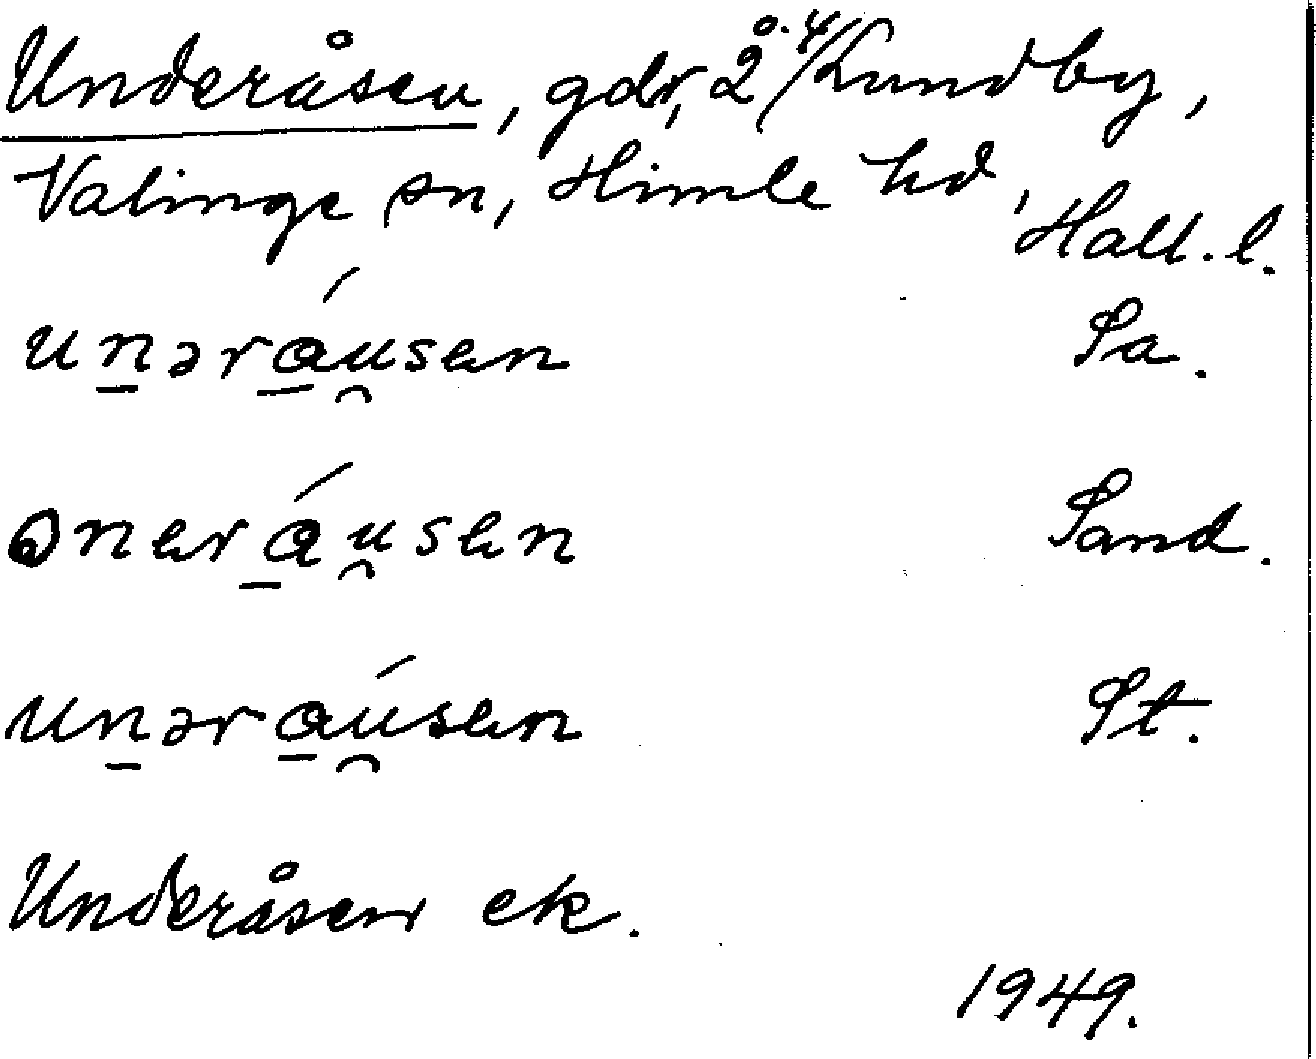 Underåsen, gdr, å 2⁴/Lundby,
Valinge sn, Himle hd,
Hall. l.
un̲əra̲ú̯sen Sa.
onerá̲̲u̯sen Sand.
un̲əraú̯sen St.
Underåsen ek.
1949.